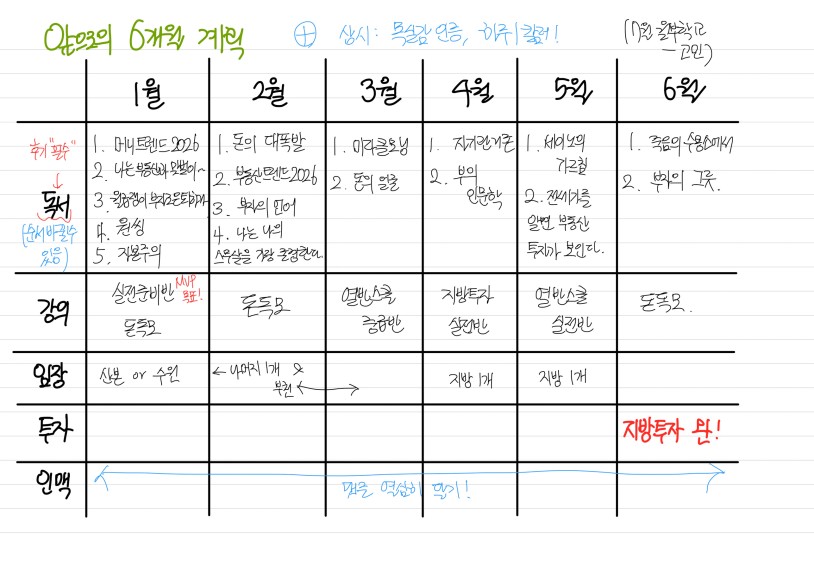 앞으로의 6개월 계획
⊕ 상시: 목실감 인증, 하루 1칼럼!
(7월 월부학교
- 고민)
1월 2월 3월 4월 5월 6월
후기 "필수"
↓
독서
(순서 바뀔 수
있음)
1. 머니트렌드 2026
2. 나는 부동산과 맞벌이~
3. 월급쟁이 부자로 은퇴하라
4. 원씽
5. 자본주의
1. 돈의 대폭발
2. 부동산트렌드 2026
3. 부자의 언어
4. 나는 나의
스무살을 가장 존경한다.
1. 미라클모닝
2. 돈의 얼굴
1. 자기관리론
2. 부의
인문학
1. 세이노의
가르침
2. 전세가를
알면 부동산
투자가 보인다.
1. 죽음의 수용소에서
2. 부자의 그릇.
강의
실전준비반
MVP
목표!
돈독모
돈독모
열반스쿨
중급반
지방투자
실전반
열반스쿨
실전반
돈독모.
임장
산본 or 수원
← 나머지 1개 &
부천 ↔
지방 1개
지방 1개
투자
지방투자 단!
인맥
댓글 열심히 달기!